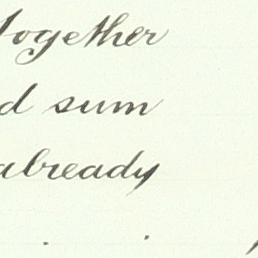 together
d sum
already